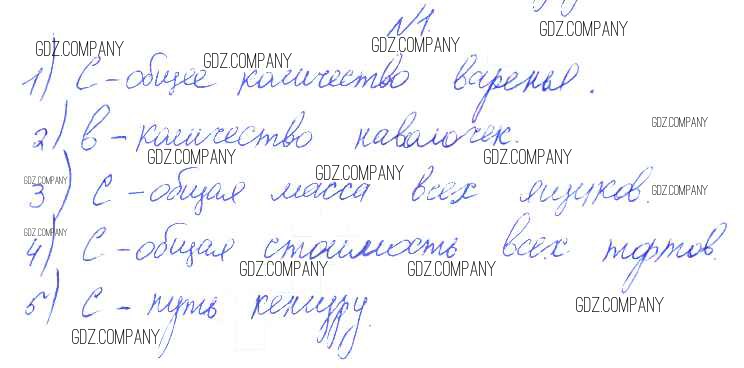 №1.
1) С - общее количество варенья.
2) в - количество наволочек.
3) С - общая масса всех ящиков.
4) С - общая стоимость всех тортов.
5) С - путь кенгуру.
GDZ.COMPANY GDZ.COMPANY GDZ.COMPANY GDZ.COMPANY
GDZ.COMPANY
GDZ.COMPANY GDZ.COMPANY GDZ.COMPANY
GDZ.COMPANY GDZ.COMPANY
GDZ.COMPANY
GDZ.COMPANY GDZ.COMPANY
GDZ.COMPANY
GDZ.COMPANY